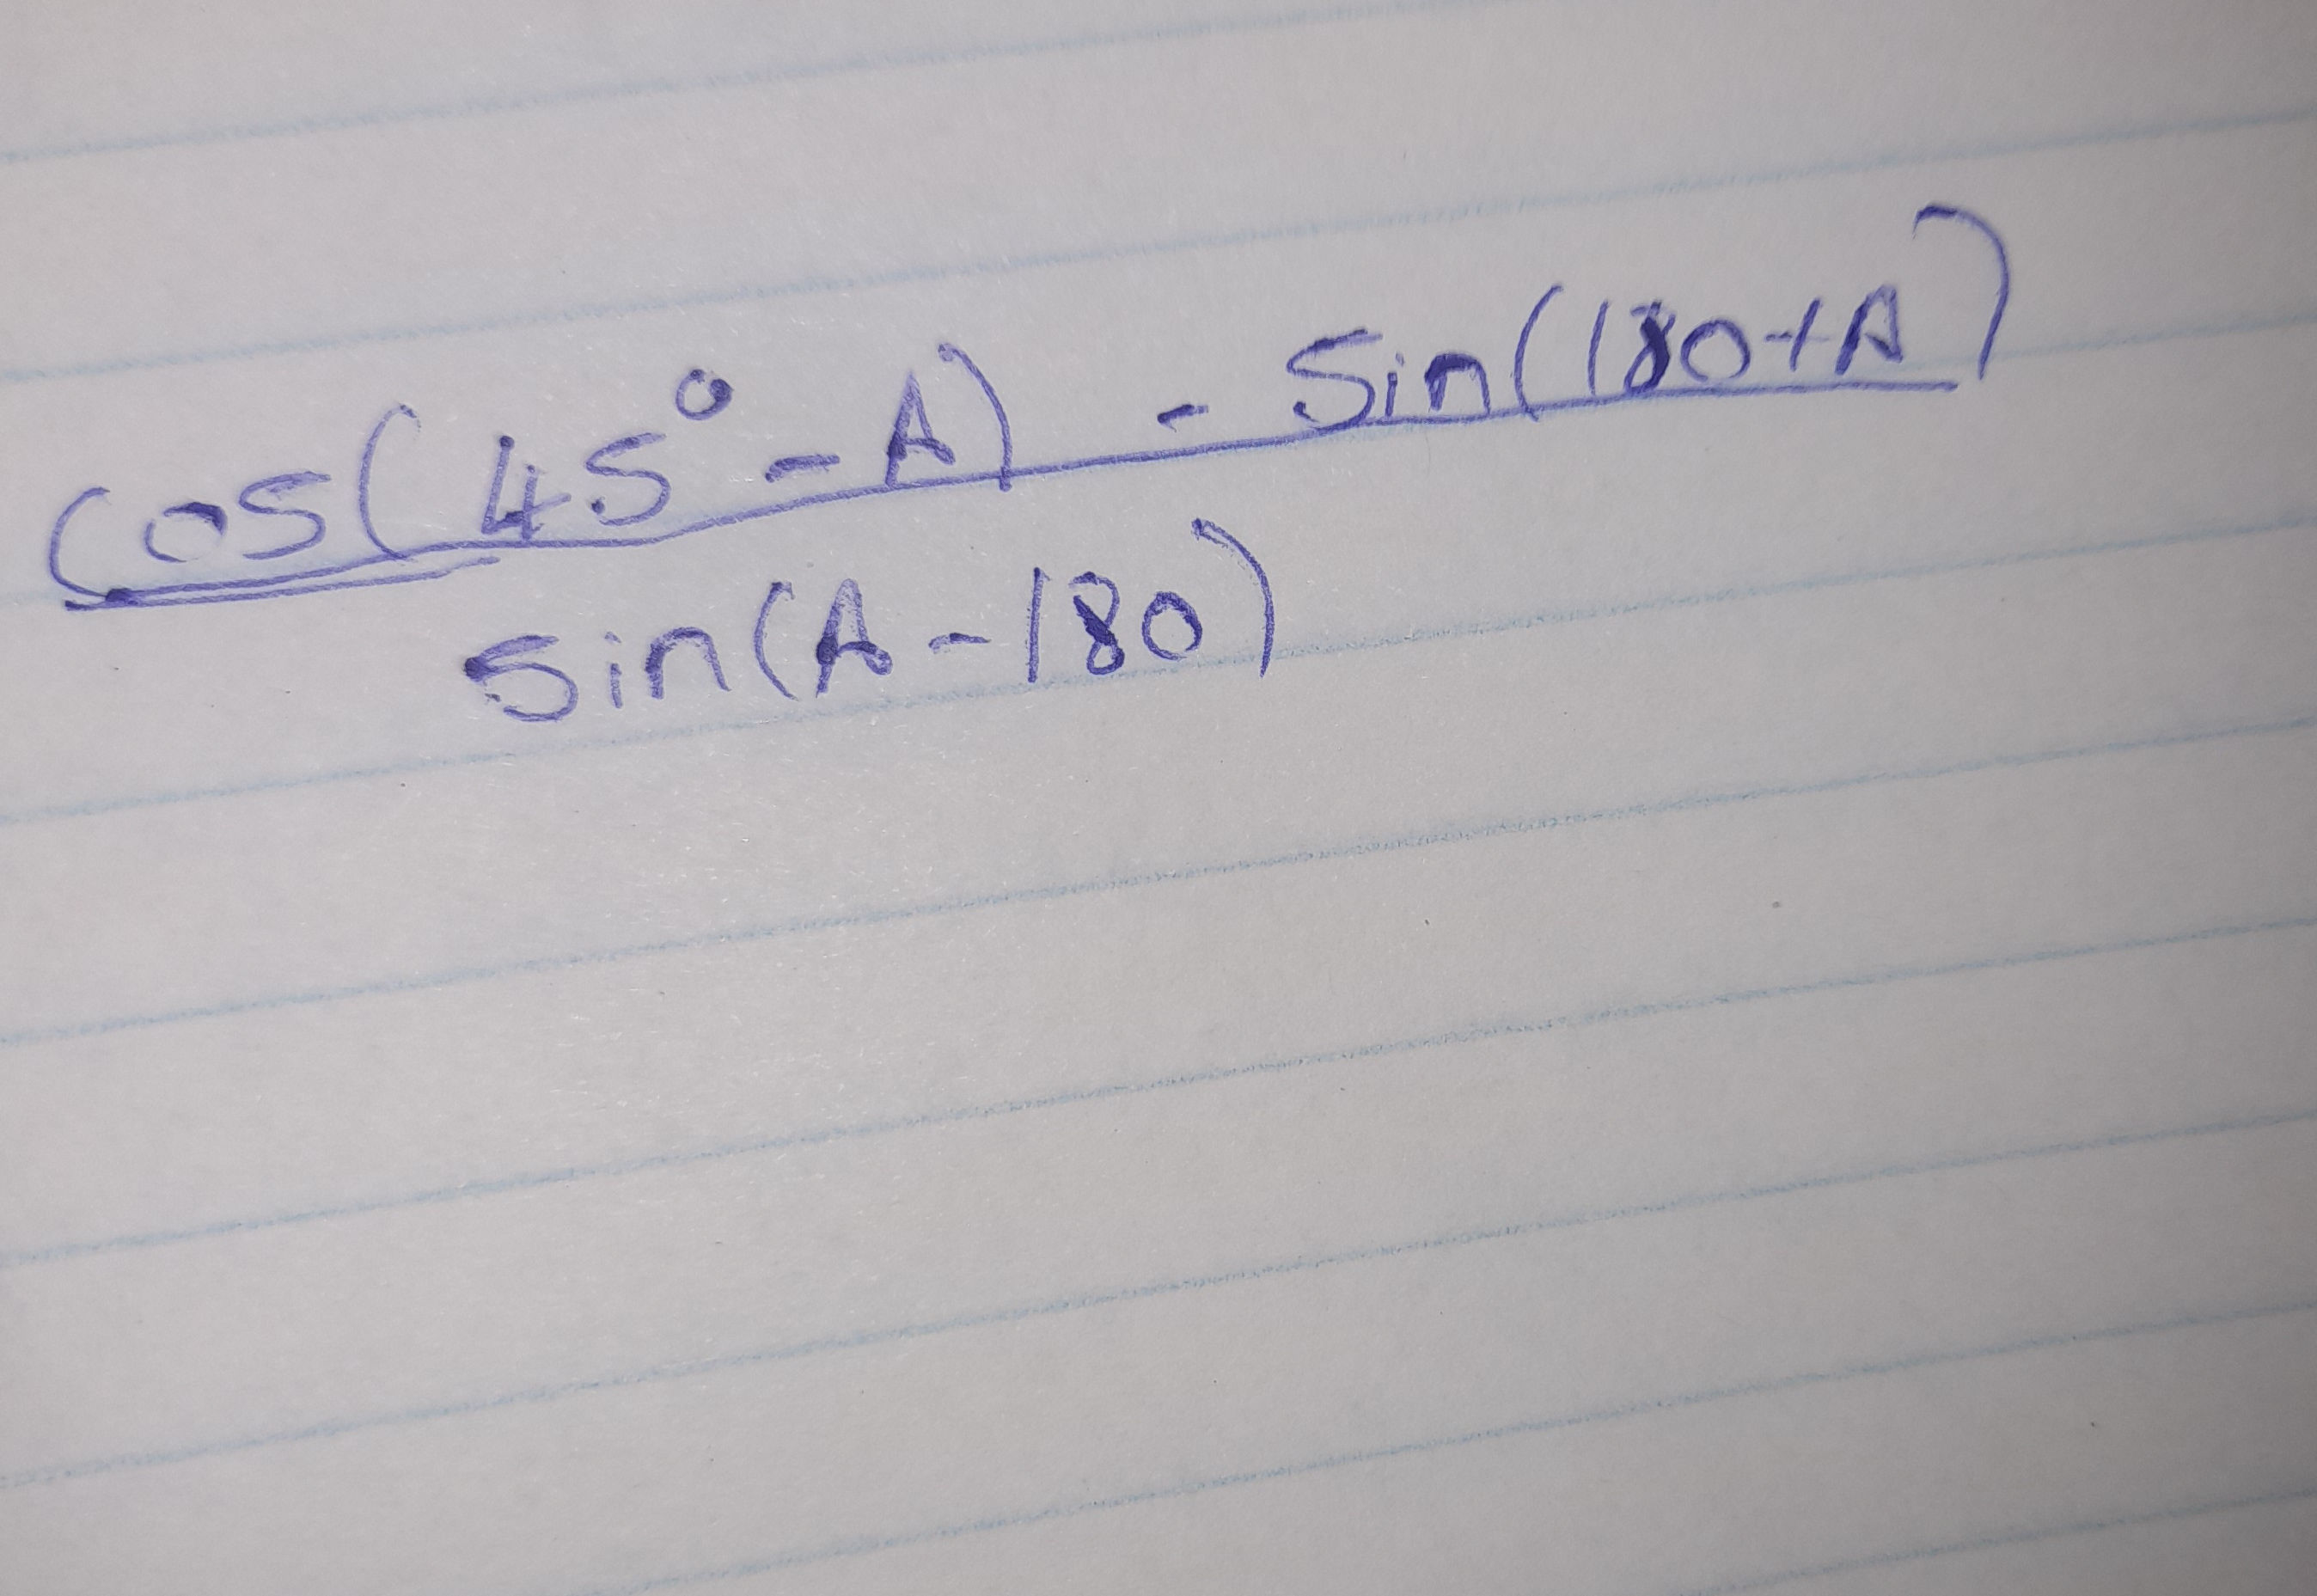 cos(45° - A) - Sin(180+A)
sin(A-180)